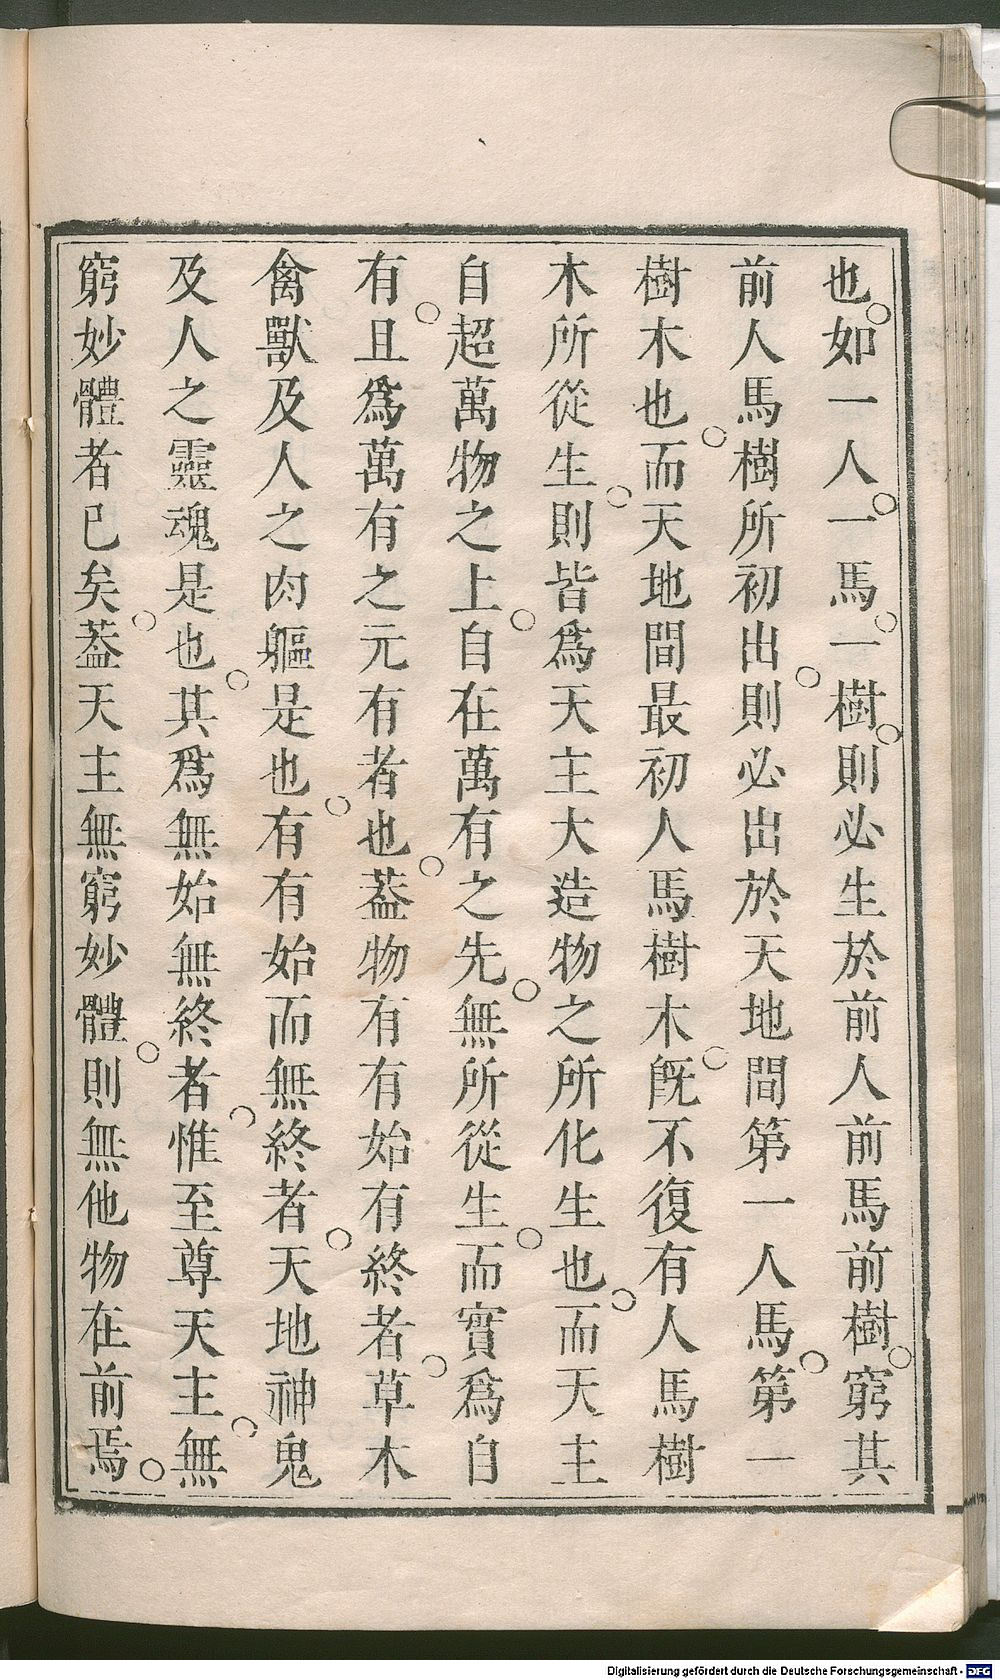 也。如一人。一馬。一樹。則必生於前人前馬前樹。窮其
前人馬樹所初出。則必出於天地間第一人馬。第一
樹木也。而天地間最初人馬樹木。旣不復有人馬樹
木所從生。則皆爲天主大造物之所化生也。而天主
自超萬物之上。自在萬有之先。無所從生。而實爲自
有。且爲萬有之元有者也。葢物有有始有終者。草木
禽獸及人之肉軀是也。有有始而無終者。天地神鬼
及人之靈魂是也。其爲無始無終者。惟至尊天主。無
窮妙體者已矣。葢天主無窮妙體。則無他物在前焉。
Digitalisierung gefördert durch die Deutsche Forschungsgemeinschaft - DFG